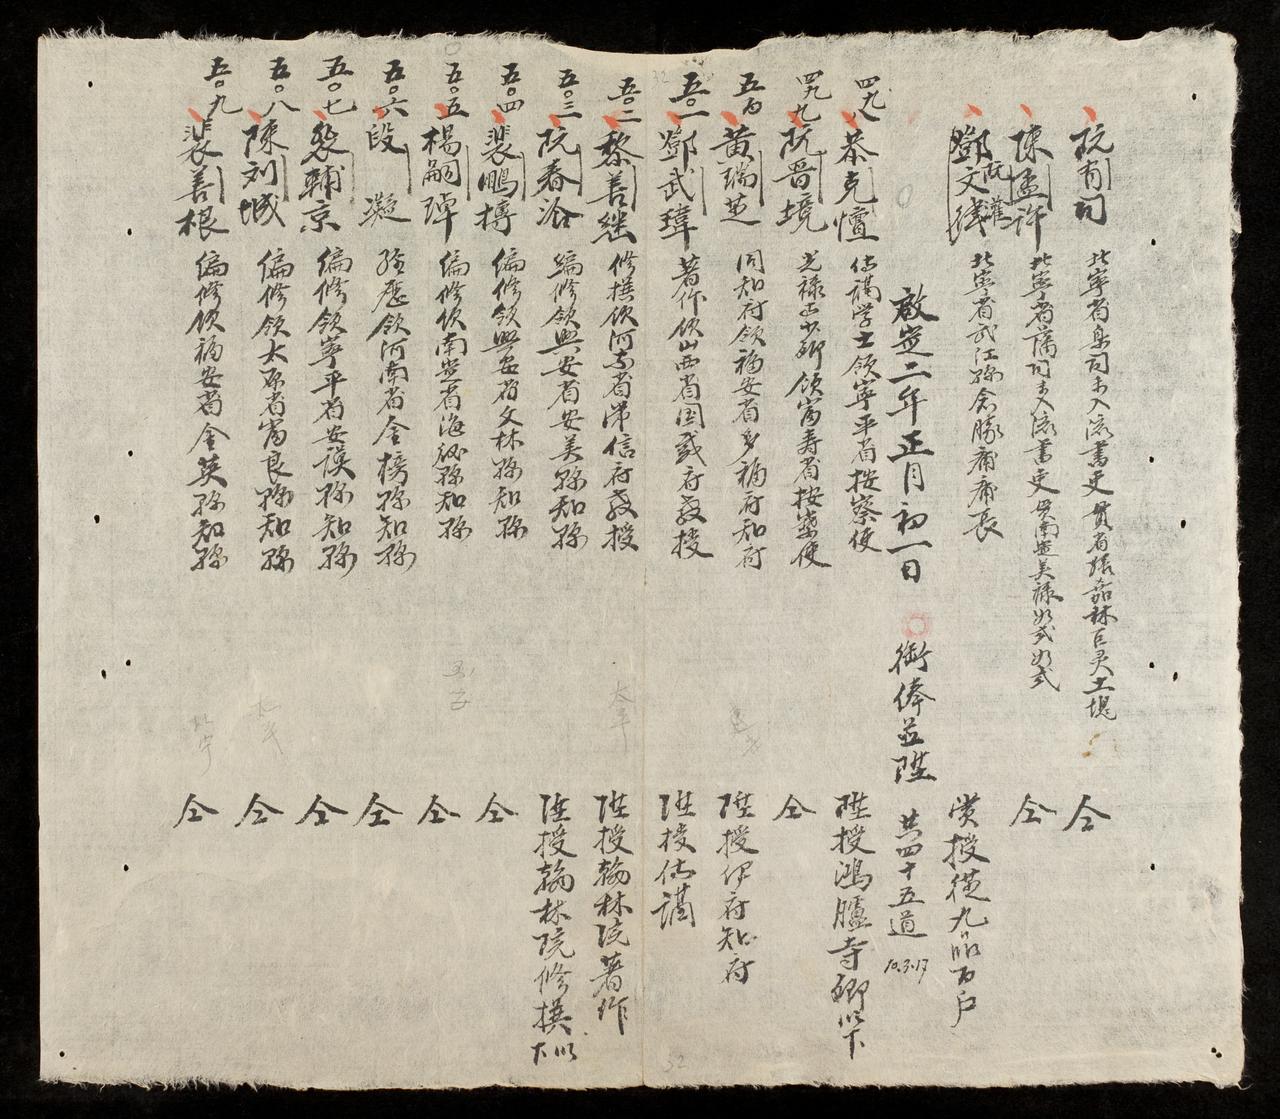 阮有司 北寧省臬司未入流書吏 貫省 嘉林 土塊 仝
陳孟許 北寧省藩司未入流書吏 貫南 美祿 仝
鄧文
阮
北寧省武江縣 長 賞授從九品百户
啟定二年正月初一日 銜俸並陞 共四十五道 10.3.17
四九八 恭克 侍講学士領寧平省按察使 陞授鴻臚寺卿以下
四九九 阮晋境 光祿寺少卿領富壽省按察使 仝
五百 黄瑞芝 同知府領福安省多福府知府 陞授伊府知府
五〇一 鄧武瑋 著作領山西省国威府教授 陞授侍講
五〇二 黎善継 修撰領河南省常信府教授 太平 陞授翰林院著作
五〇三 阮春洽 編修領興安省安美縣知縣 陞授翰林院修撰以下
五〇四 裴鵬摶 編修領興安省文林縣知縣 仝
五〇五 楊嗣璋 編修領南定省海後縣知縣 仝
五〇六 段凝 經歷領河南省金榜縣知縣 仝
五〇七 裴輔京 編修領寧平省安謨縣知縣 仝
五〇八 陳刘城 編修領太原省富良縣知縣 太平 仝
五〇九 裴善根 編修領福安省金英縣知縣 北宁 仝
32